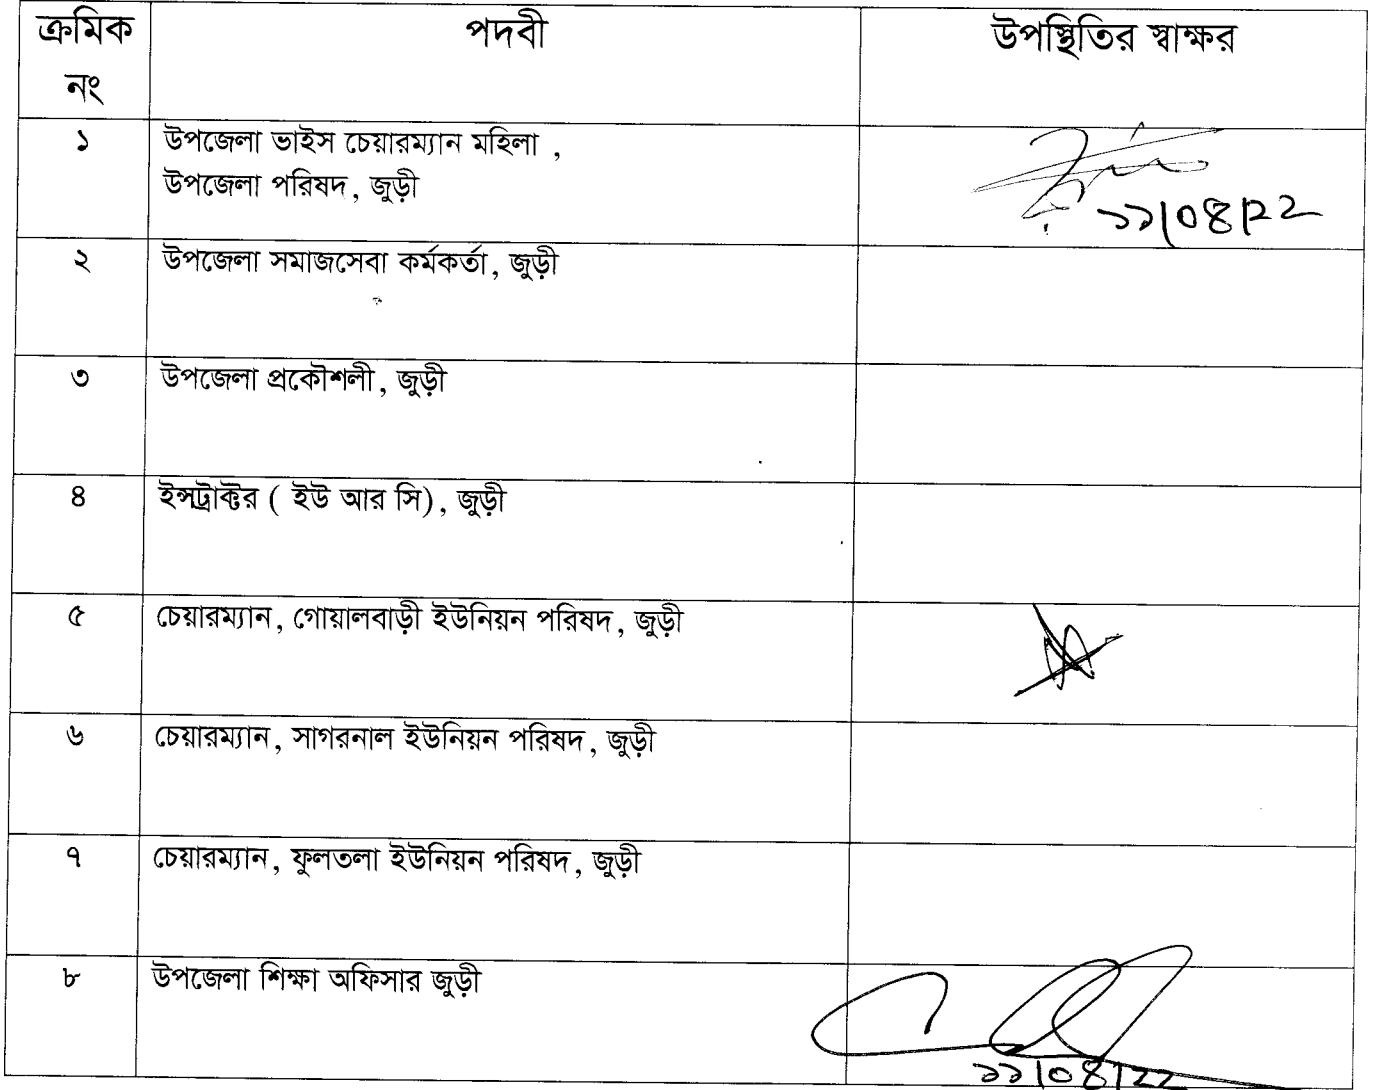 ক্রমিক নং পদবী উপস্থিতির স্বাক্ষর
১ উপজেলা ভাইস চেয়ারম্যান মহিলা ,
উপজেলা পরিষদ, জুড়ী
১১/০৪/২২
২ উপজেলা সমাজসেবা কর্মকর্তা, জুড়ী
৩ উপজেলা প্রকৌশলী, জুড়ী
৪ ইন্সট্রাক্টর ( ইউ আর সি), জুড়ী
৫ চেয়ারম্যান, গোয়ালবাড়ী ইউনিয়ন পরিষদ, জুড়ী
৬ চেয়ারম্যান, সাগরনাল ইউনিয়ন পরিষদ, জুড়ী
৭ চেয়ারম্যান, ফুলতলা ইউনিয়ন পরিষদ, জুড়ী
৮ উপজেলা শিক্ষা অফিসার জুড়ী
১১/০৪/২২